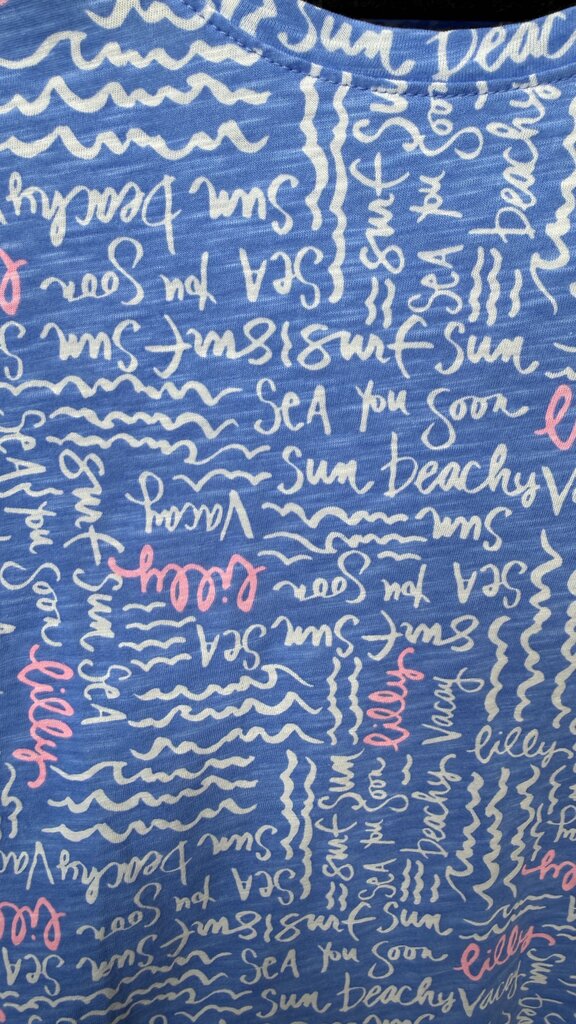 Sun Beac
Sun Beachy
Surf Sun
Sea you Soon
beachy
Sea you Soon
Sun Surf Surf Sun
Sea you Soon
Sun beachy Va
Vacay
Sun
lilly
Soon you Sea
Sea you Soon
Surf Sun Sea
Sea Sun Surf
lilly
lilly
Vacay
lilly
Sun Beachy Vacay
Surf Sun
Sea you Soon
beachy
Sea you Soon
Sun Surf Surf Sun
Sea you Soon
lilly
lilly
Sun beachy Vacay
Sun